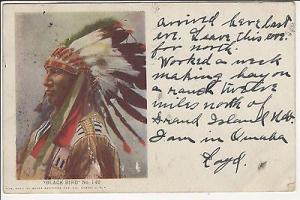 arrived here last
eve. Leave this eve.
for north.
Worked a week
making hay on
a ranch twelve
miles north of
Grand Island
I am in Omaha
Loyd.
"BLACK BIRD" No. 140